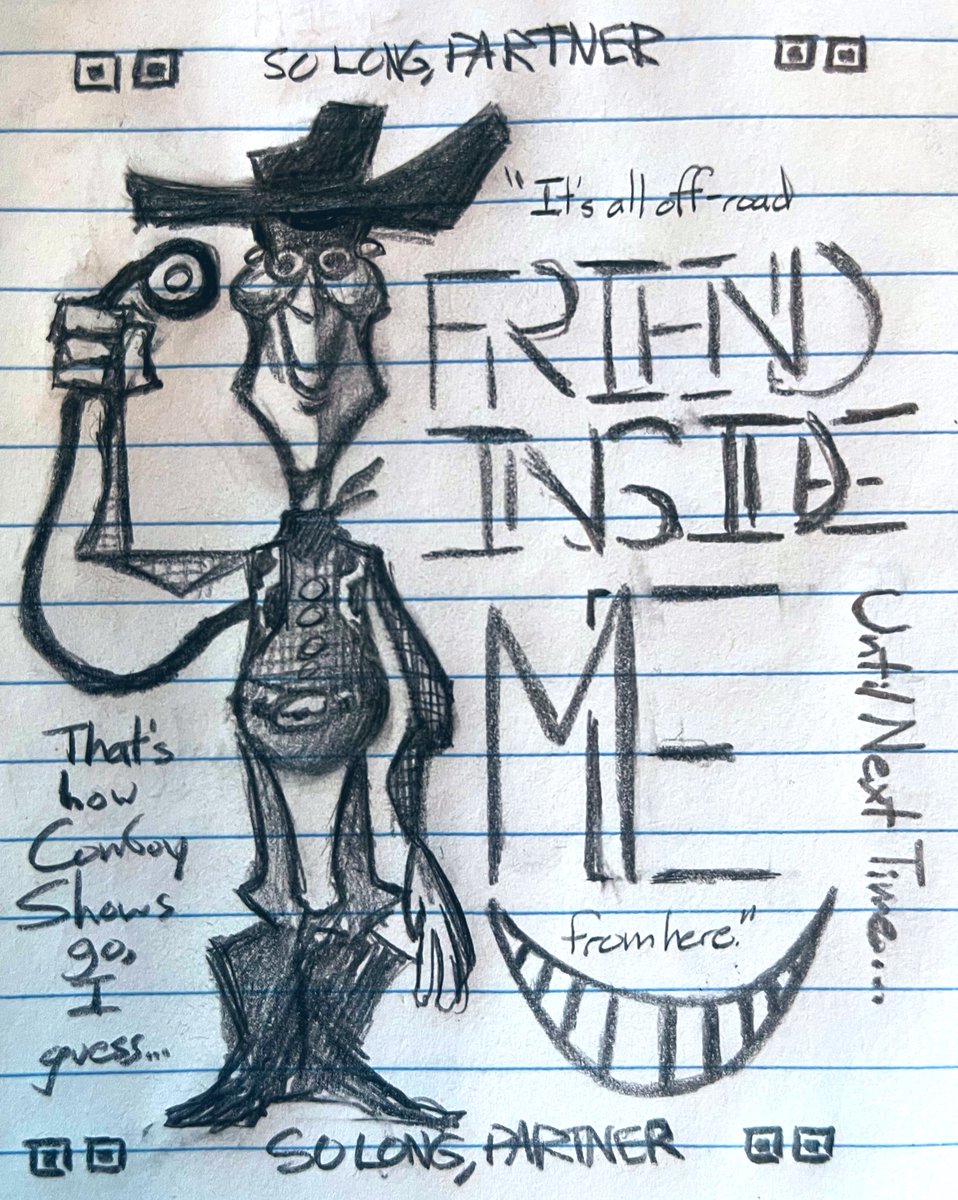 SO LONG, PARTNER
"It's all off-road
FRIEND
INSIDE
ME
from here."
Until Next Time...
That's
how
Cowboy
Shows
go,
I
guess...
SO LONG, PARTNER